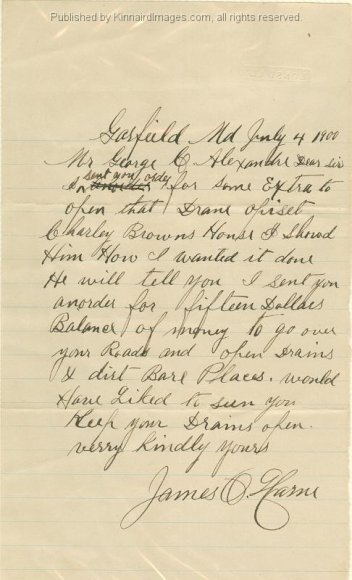 Published by KinnairdImages.com, all rights reserved.
Garfield Md July 4 1900
Mr George C. Alexandre Dear Sir
sent you order
I for Some Extra to
open that Drane opiset
Charley Browns House I Showd
Him How I wanted it done
He will tell you I sent you
anorder for fifteen Dollars
Balance of money to go over
your Roads and open Drains
& dirt Bare Places. would
Have Liked to seen you
Keep your Drains open.
verry kindly yours
James O. Harne